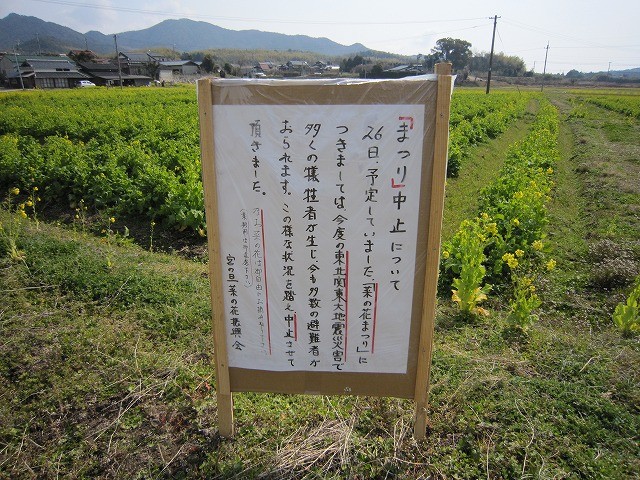 「まつり」中止について
26日、予定していました、「菜の花まつり」に
つきましては、今度の東北関東大地震災害で
多くの犠牲者が生じ、今も多数の避難者が
おられます。この様な状況を踏え中止させて
頂きました。
お菜の花は御自由に
宮の旦「菜の花